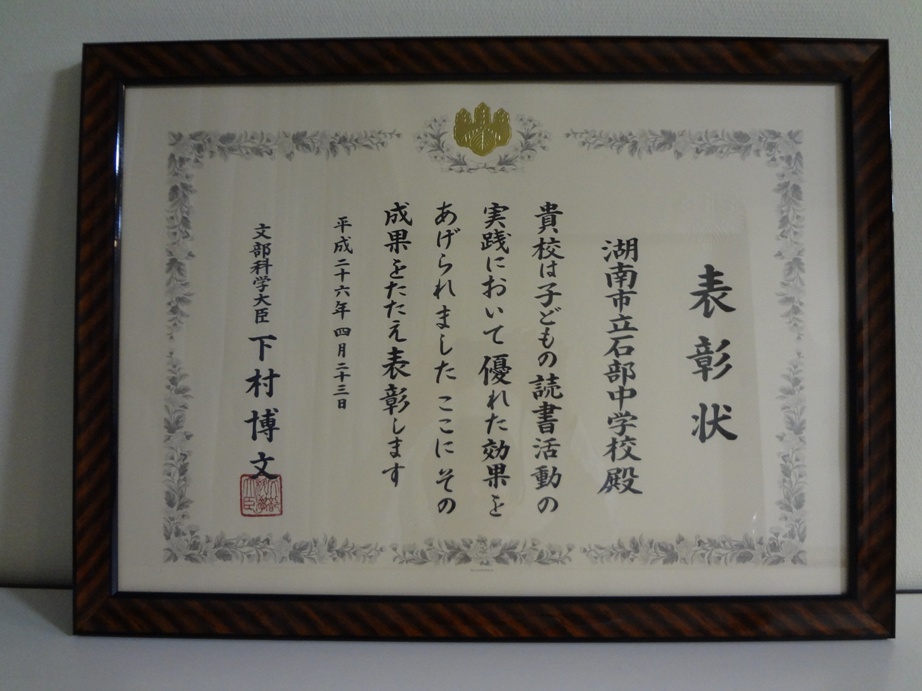 表彰状
湖南市立石部中学校殿
貴校は子どもの読書活動の
実践において優れた効果を
あげられました ここに その
成果をたたえ表彰します
平成二十六年四月二十三日
文部科学大臣 下村博文